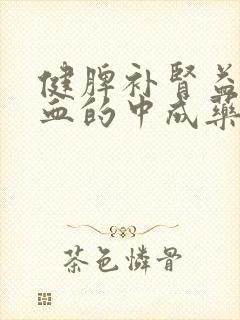 健脾补肾益
血的中成药
茶色憐骨